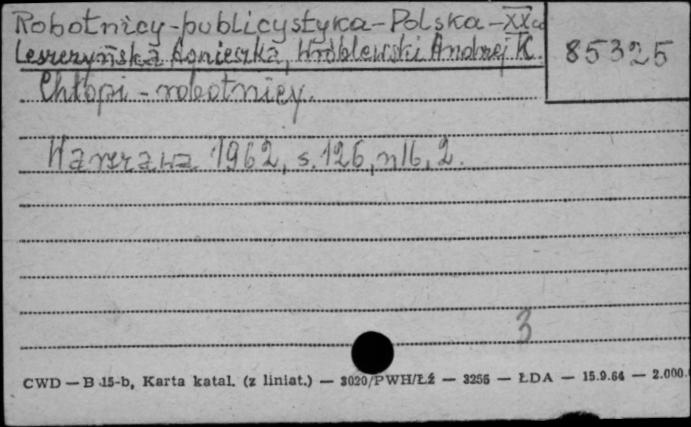 Robotnicy-publicystyka-Polska-XX
85325
Leszczyńska Agnieszka, Wróblewski Andrzej K.
Chłopi - robotnicy.
Warszawa 1962, s. 126, nlb, 2.
3
CWD — B 15-b, Karta katal. (z liniat.) — 3020/PWH/Łź — 3256 — ŁDA — 15.9.64 — 2.000.